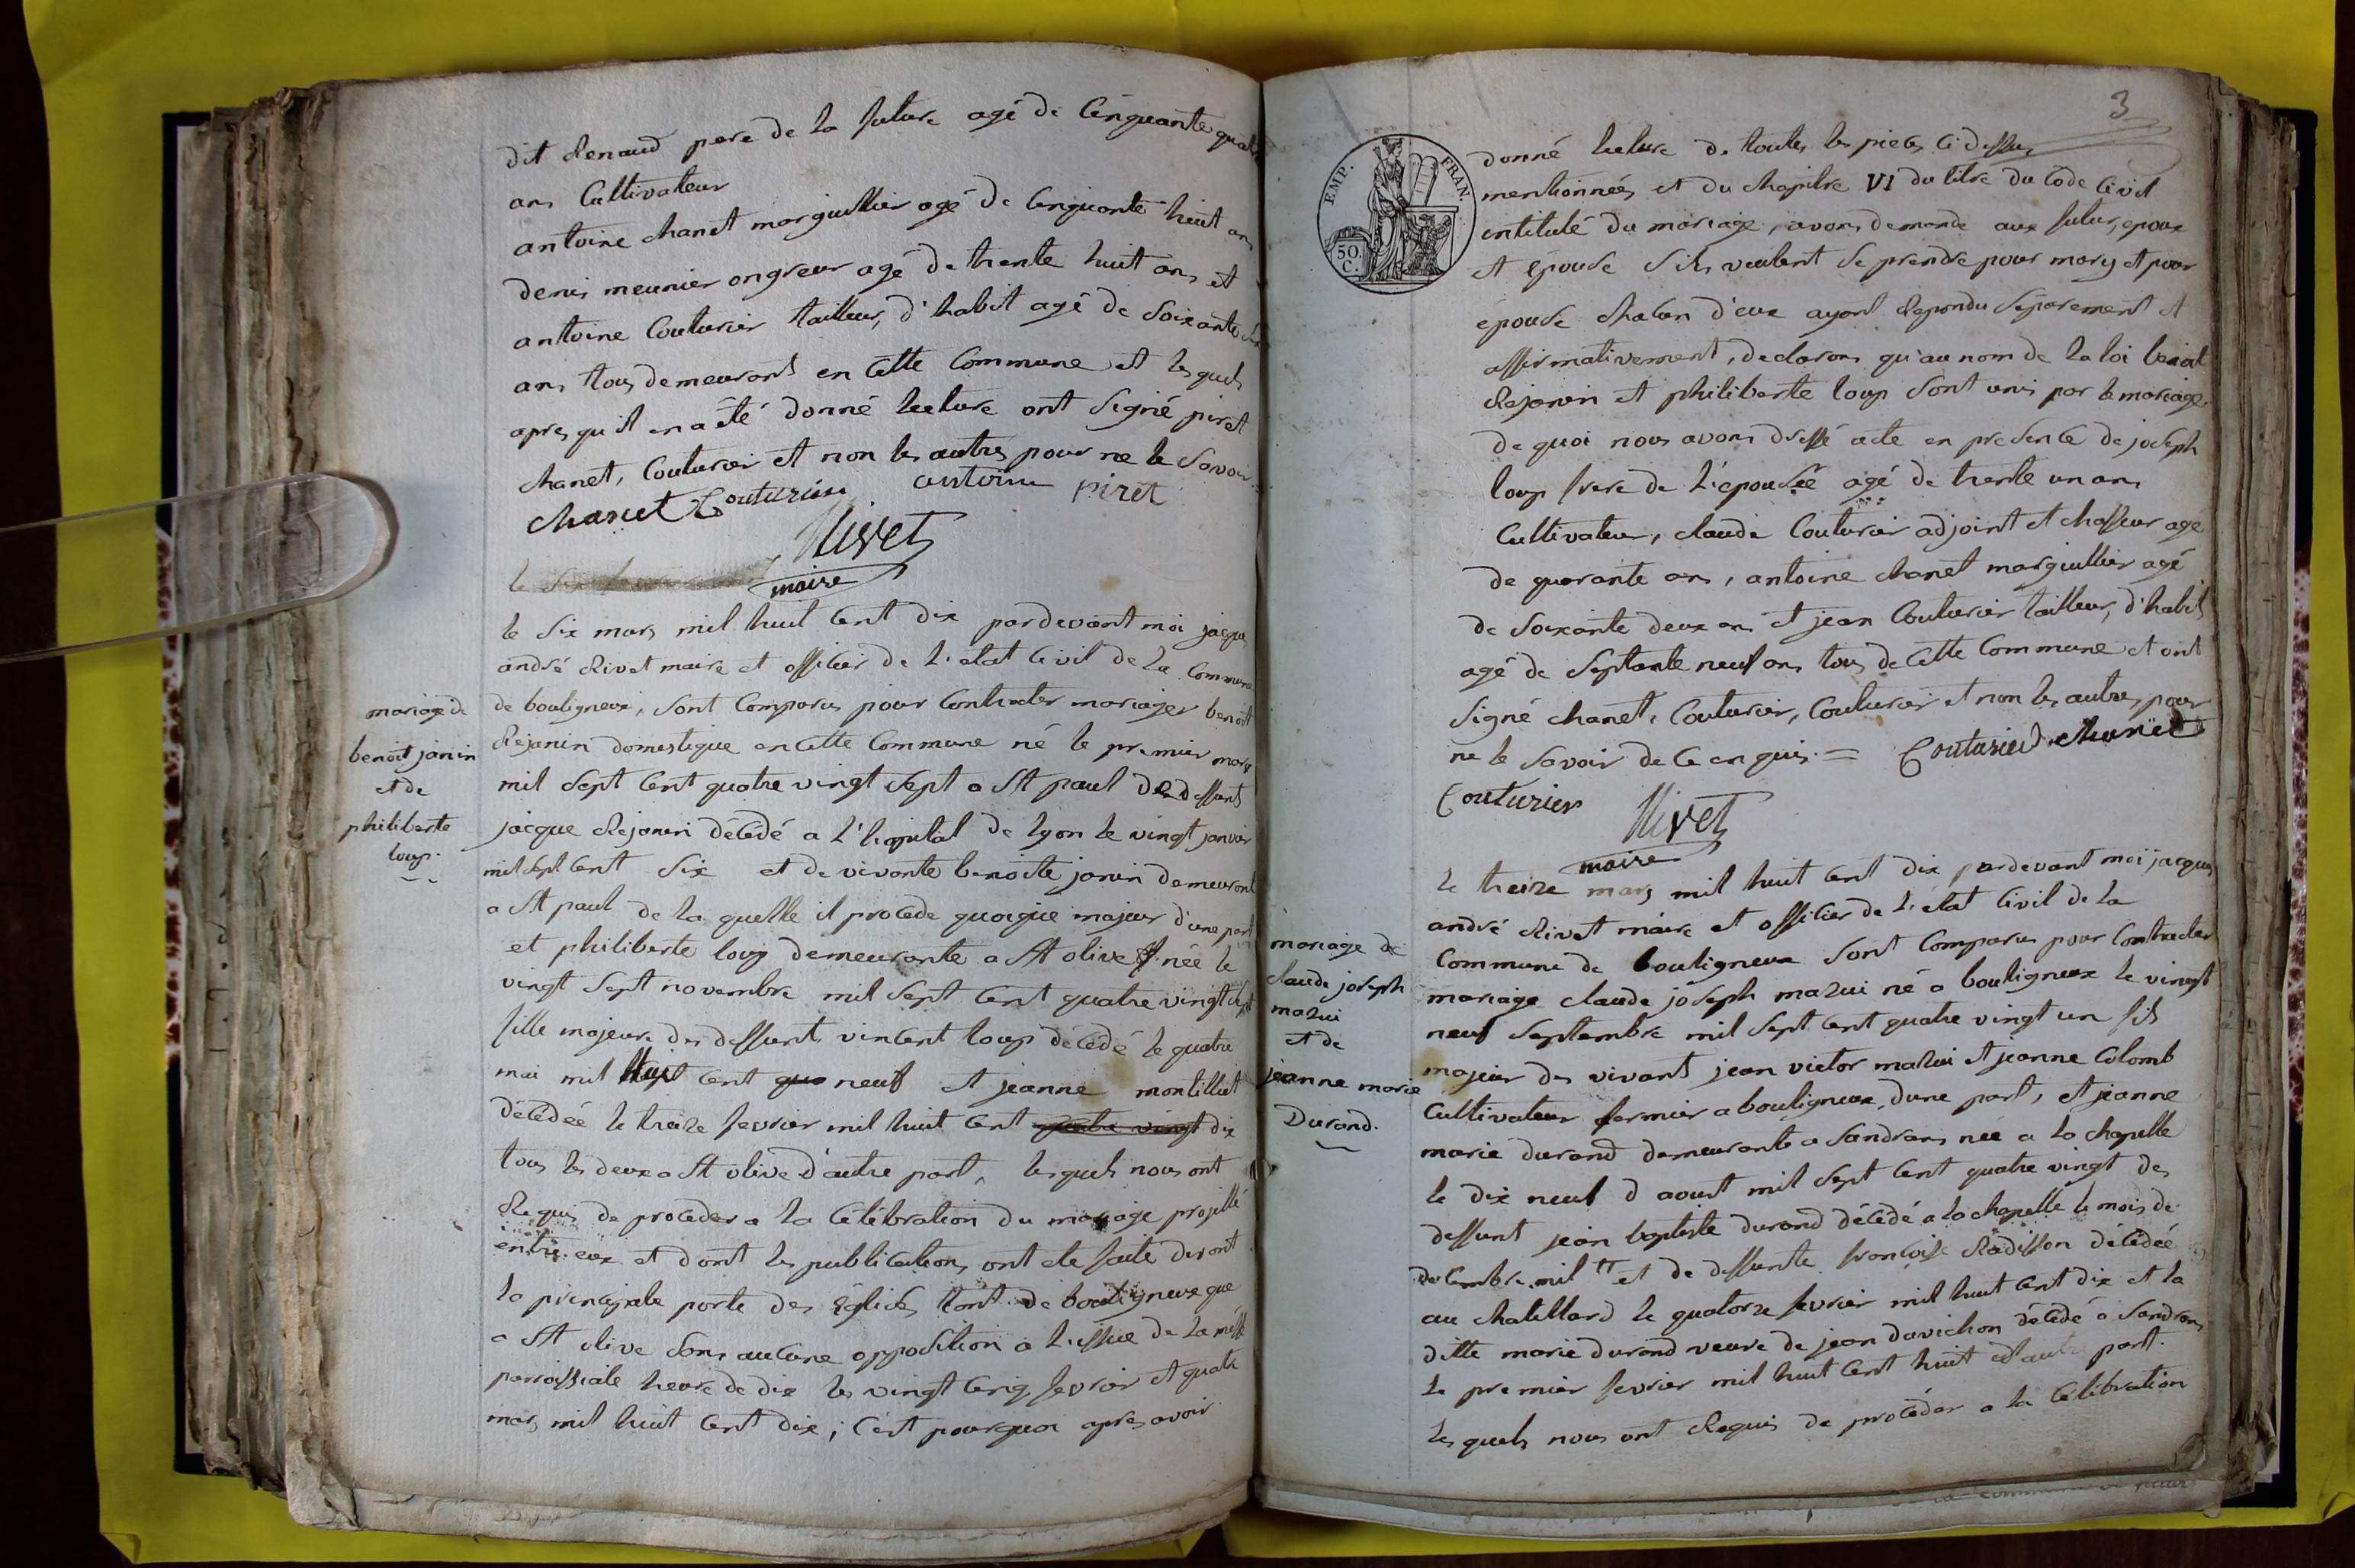 dit Renaud pere de la future agé de Cinquante quat
ans Cultivateur
antoine chanet marguillier agé de Cinquante huit ans
denis meunier ongreur agé de trente huit ans et
antoine Couturier tailleur, d'habit agé de Soixante
ans tous demeurant en Cette Commune et les quels
apres qu'il en a été donné lecture ont Signé piret
chanet, Couturier et non les autres pour ne le Savoir
chanet Couturier antoine piret
Rivet
maire
le
le Six mars mil huit Cent dix pardevant moi jacque
andré Rivet maire et officier de l'etat Civil de la Commune
de bouligneux, Sont Comparus pour Contracter mariager benoit
Rejanin domestique en Cette Commune né le premier mars
mil Sept Cent quatre vingt Sept a St paul de deffunt
jacque Rejanin décédé a l'hopital de lyon le vingt janvier
mil Sept Cent Six et de vivante benoite janin demeurant
a St paul de la quelle il procede quoique majeur d'une part
et philiberte loup demeurante a St olive née le
vingt Sept novembre mil Sept Cent quatre vingt Sept
fille majeure des deffunts vincent loup décédé le quatre
mai mil huit Cent qua neuf et jeanne montilliet
décédée le treize fevrier mil huit Cent quatre vingt dix
tous les deux a St olive d'autre part, les quels nous ont
Requis de proceder a la Célébration du mariage projetté
entre eux et dont les publications ont ete faite devant
la principale porte des Eglises tant de bouligneux que
a St olive Sans aucune opposition a l'issue de la messe
parroissiale heure de dix les vingt Cinq fevrier et quatre
mars mil huit Cent dix; C'est pourquoi apres avoir
mariage de
benoit janin
et de
philiberte
loup.
3
EMP. FRAN.
50.
C.
donné lecture de toutes les pieces Ci dessus
mentionnées et du chapitre VI du titre du Code Civil
intitulé du mariage, avons demandé aux futurs, epoux
et épouse S'ils veulent Se prendre pour mary et pour
épouse chacun d'eux ayant Repondu Séparement et
affirmativement, declarons qu'au nom de la loi benoit
Rejanin et philiberte loup Sont unis par le mariage
de quoi nous avons dressé acte en presence de joseph
loup frere de l'épousée agé de trente un ans
Cultivateur, claude Couturier adjoint et chasseur agé
de quarante ans, antoine chanet marguillier agé
de Soixante deux ans et jean Couturier tailleur, d'habit
agé de Septante neuf ans tous de Cette Commune et ont
Signé chanet, Couturier, Couturier et non les autres, pour
ne le Savoir de Ce enquis = Couturier chanet
Couturier Rivet
maire
le treize mars mil huit Cent dix pardevant moi jacques
andré Rivet maire et officier de l'etat Civil de la
Commune de bouligneux Sont Comparus pour Contracter
mariage claude joseph mazui né a bouligneux le vingt
neuf Septembre mil Sept Cent quatre vingt un fils
majeur des vivants jean victor mazui et jeanne Colomb
Cultivateur fermier a bouligneux, dune part, et jeanne
marie durand demeurante a Sandrans née a la chapelle
le dix neuf d aoust mil Sept Cent quatre vingt de
deffunt jean baptiste durand décédé a la chapelle le mois de
decembre mil et de deffunte françoise Radisson décédée
au chatellard le quatorze fevrier mil huit Cent dix et la
ditte marie durand veuve de jean davichon décédé a Sandrans
le premier fevrier mil huit Cent huit d'autre part.
les quels nous ont Requis de procéder a la Célébration
mariage de
claude joseph
mazui
et de
jeanne marie
Durand.